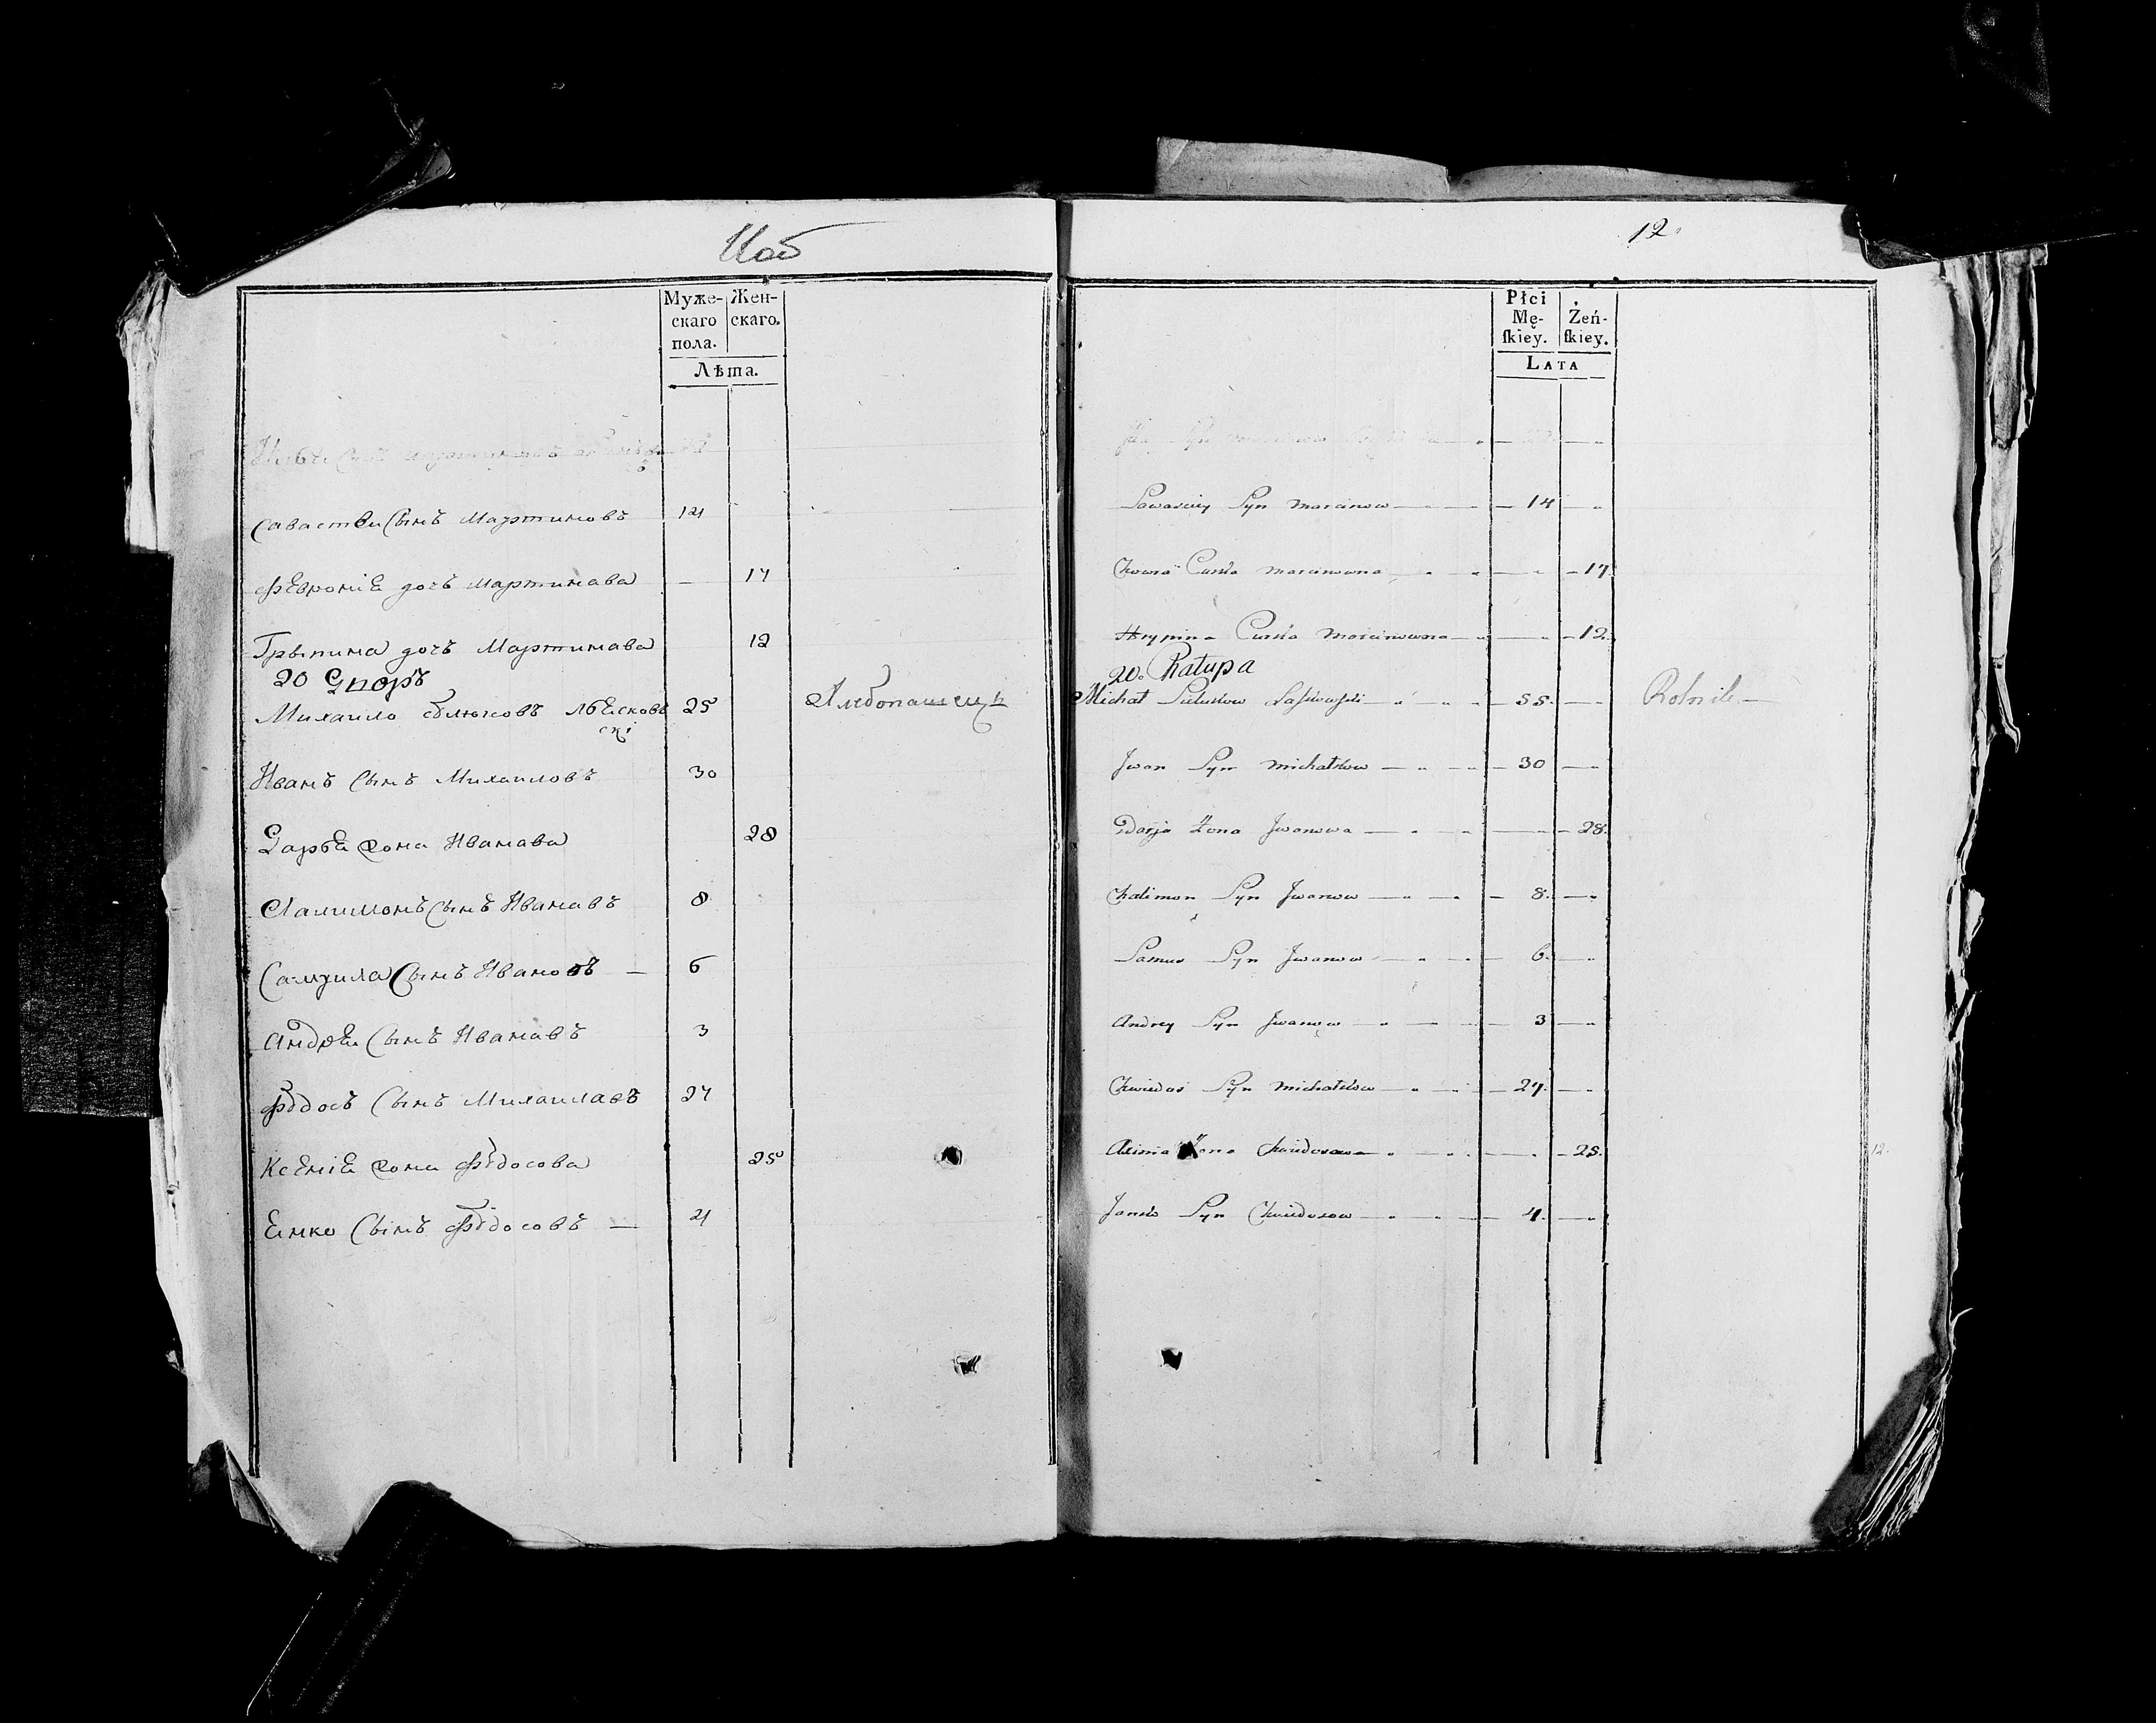 Муже-
скаго
пола.
Жен-
скаго.
Лѣта.
сынъ
Савастеи Сынъ Мартиновъ 14
Февроніе дочъ Мартинава — 17
Грыпина дочъ Мартинава 12
20 Дворъ
Михаило 25 Хлебопашецъ
скі
Иванъ Сынъ Михаиловъ 30
Даре жона Ивана­ва 28
Халимонъ Сынъ Иванавъ 8
Самуила Сынъ Ивановъ — 6
Андреи Сынъ Иванавъ 3
Федосъ Сынъ Михаилавъ 27
Ксеніе жона Федосова 25
Емко Сынъ Федосовъ — 4
12.
Płci
Mę-
ſkiey.
Żeń-
ſkiey.
LATA
Syn
Sawasciey Syn Marcinow — 14 —
Chowra Curka Marcinowna — 17.
Hrypina Curka Marcinowna — 12.
20. Chałupa
Michał Łaskowski — 55. — Rolnik —
Jwan Syn Michałkow — 30 —
Darja Żona Jwanowa — 28.
Chalimon Syn Jwanow — 8. —
Samus Syn Jwanow — 6. —
Andrey Syn Jwanow — 3 —
Chwiedos Syn Michałkow — 27. —
Axinia Żona Chwiedosowa — 25.
Janko Syn Chwiedosow — 4. —
12.